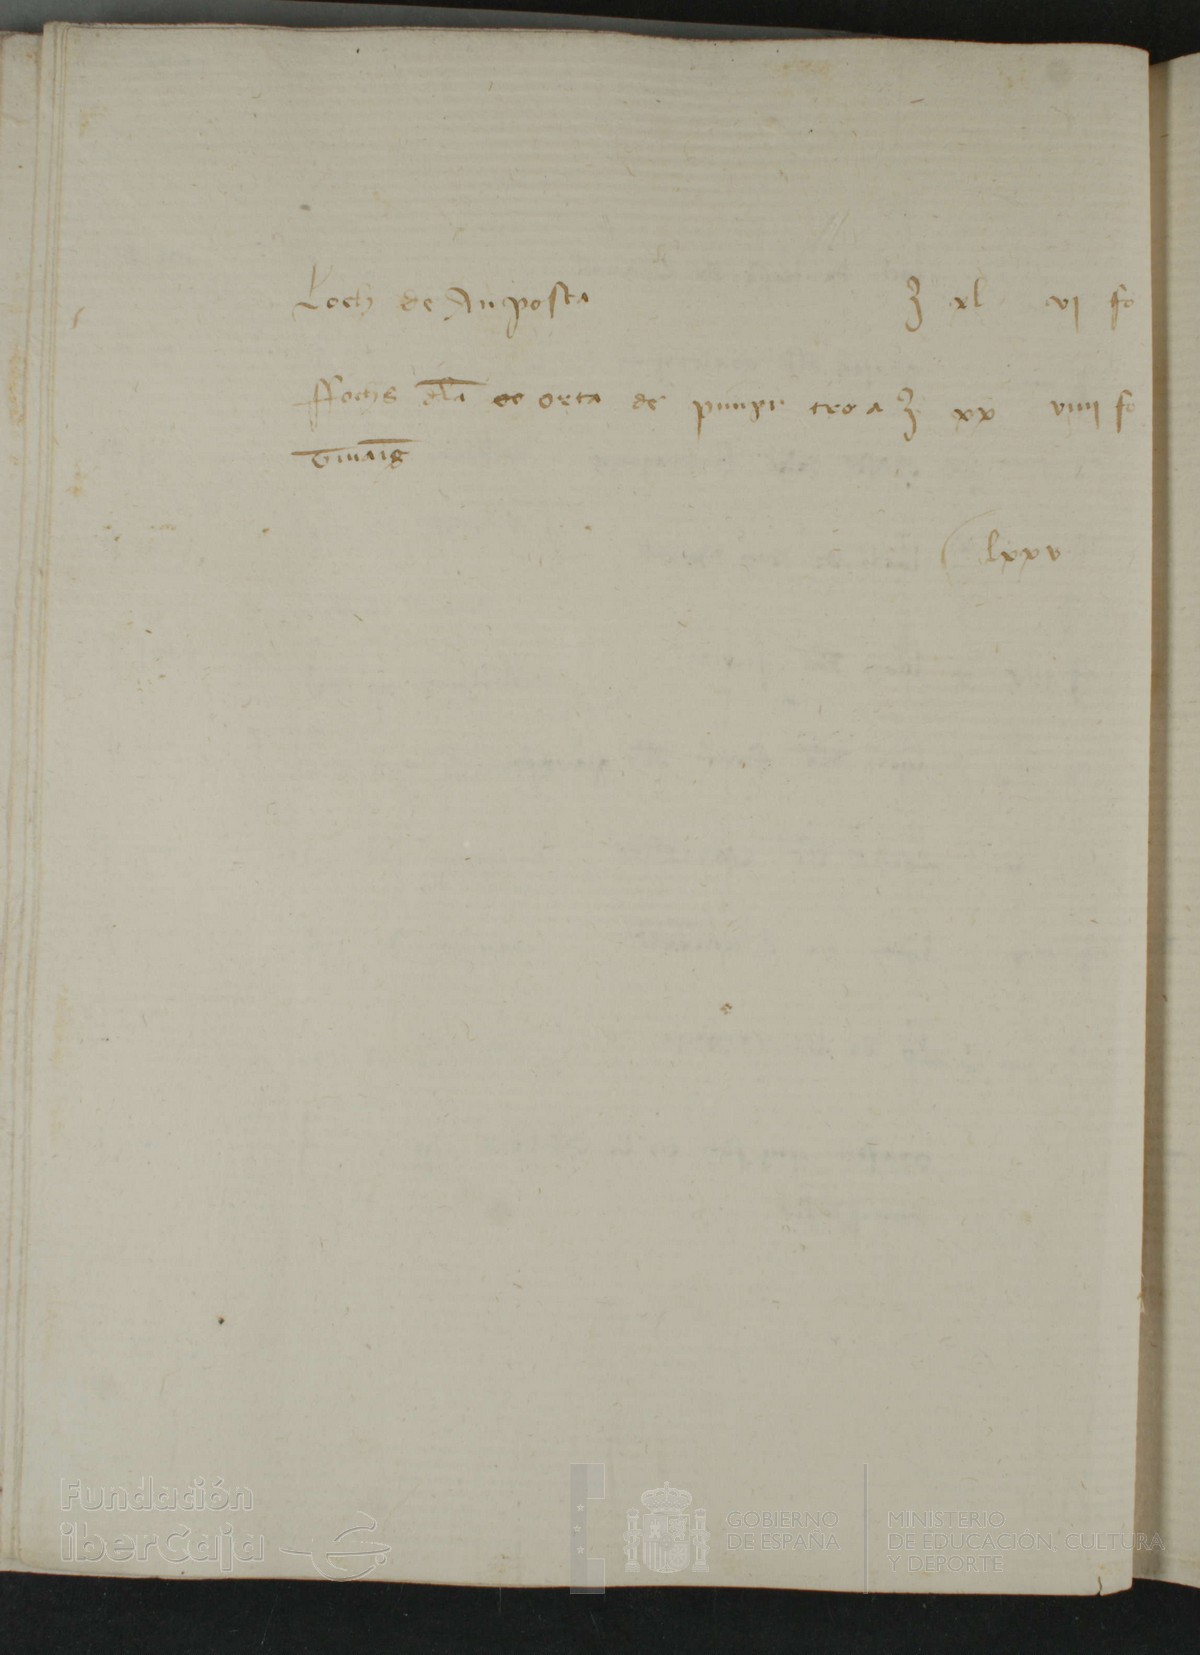 Loch de Anposta ʒ xl vi fo
ffochs dla de orta de puniyn tro a ʒ xx viiii fo
lxxv
Fundación
iberCaja
GOBIERNO
DE ESPAÑA
MINISTERIO
DE EDUCACIÓN, CULTURA
Y DEPORTE